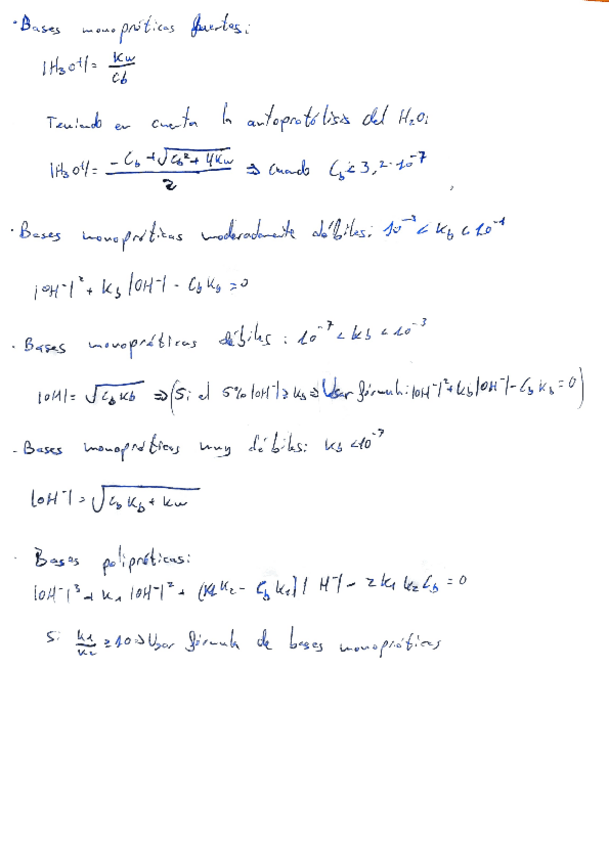 · Bases monopróticas fuertes:
|H₃O⁺| = Kw / Cb
Teniendo en cuenta la autoprotólisis del H₂O:
|H₃O⁺| = (-Cb + √(Cb² + 4Kw)) / 2 ⇒ Cuando Cb < 3,2·10⁻⁷
· Bases monopróticas moderadamente débiles: 10⁻³ < Kb < 10⁻¹
|OH⁻|² + Kb |OH⁻| - CbKb = 0
· Bases monopróticas débiles: 10⁻⁷ < Kb < 10⁻³
|OH| = √(CbKb) ⇒ (Si el 5% |OH⁻| ≥ Kb ⇒ Usar fórmula: |OH⁻|² + Kb |OH⁻| - CbKb = 0)
- Bases monopróticas muy débiles: Kb < 10⁻⁷
|OH⁻| = √(CbKb + Kw)
· Bases polipróticas:
|OH⁻|³ + K₁ |OH⁻|² + (K₁K₂ - CbK₁) | H⁻| - 2K₁K₂Cb = 0
Si K₁/K₂ ≥ 10 ⇒ Usar fórmula de bases monopróticas